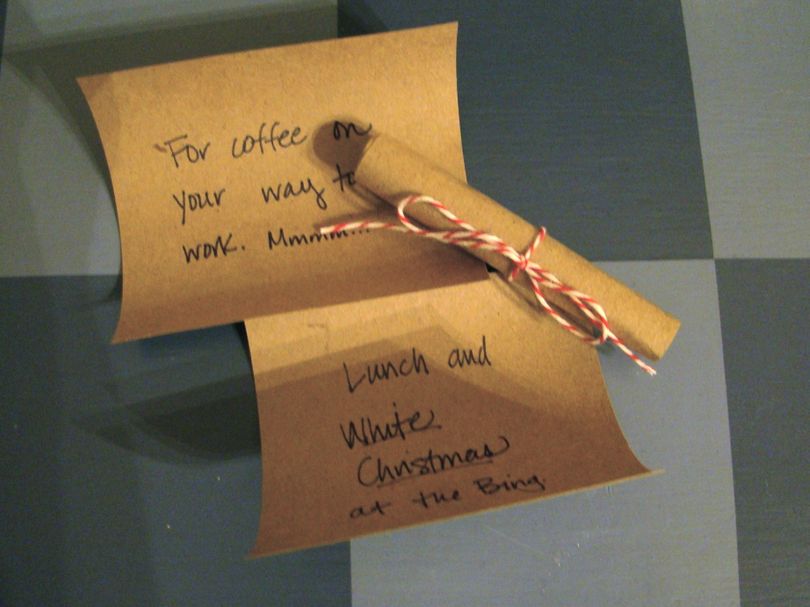 For coffee on
your way to
work. Mmmm...
Lunch and
White
Christmas
at the Bing.